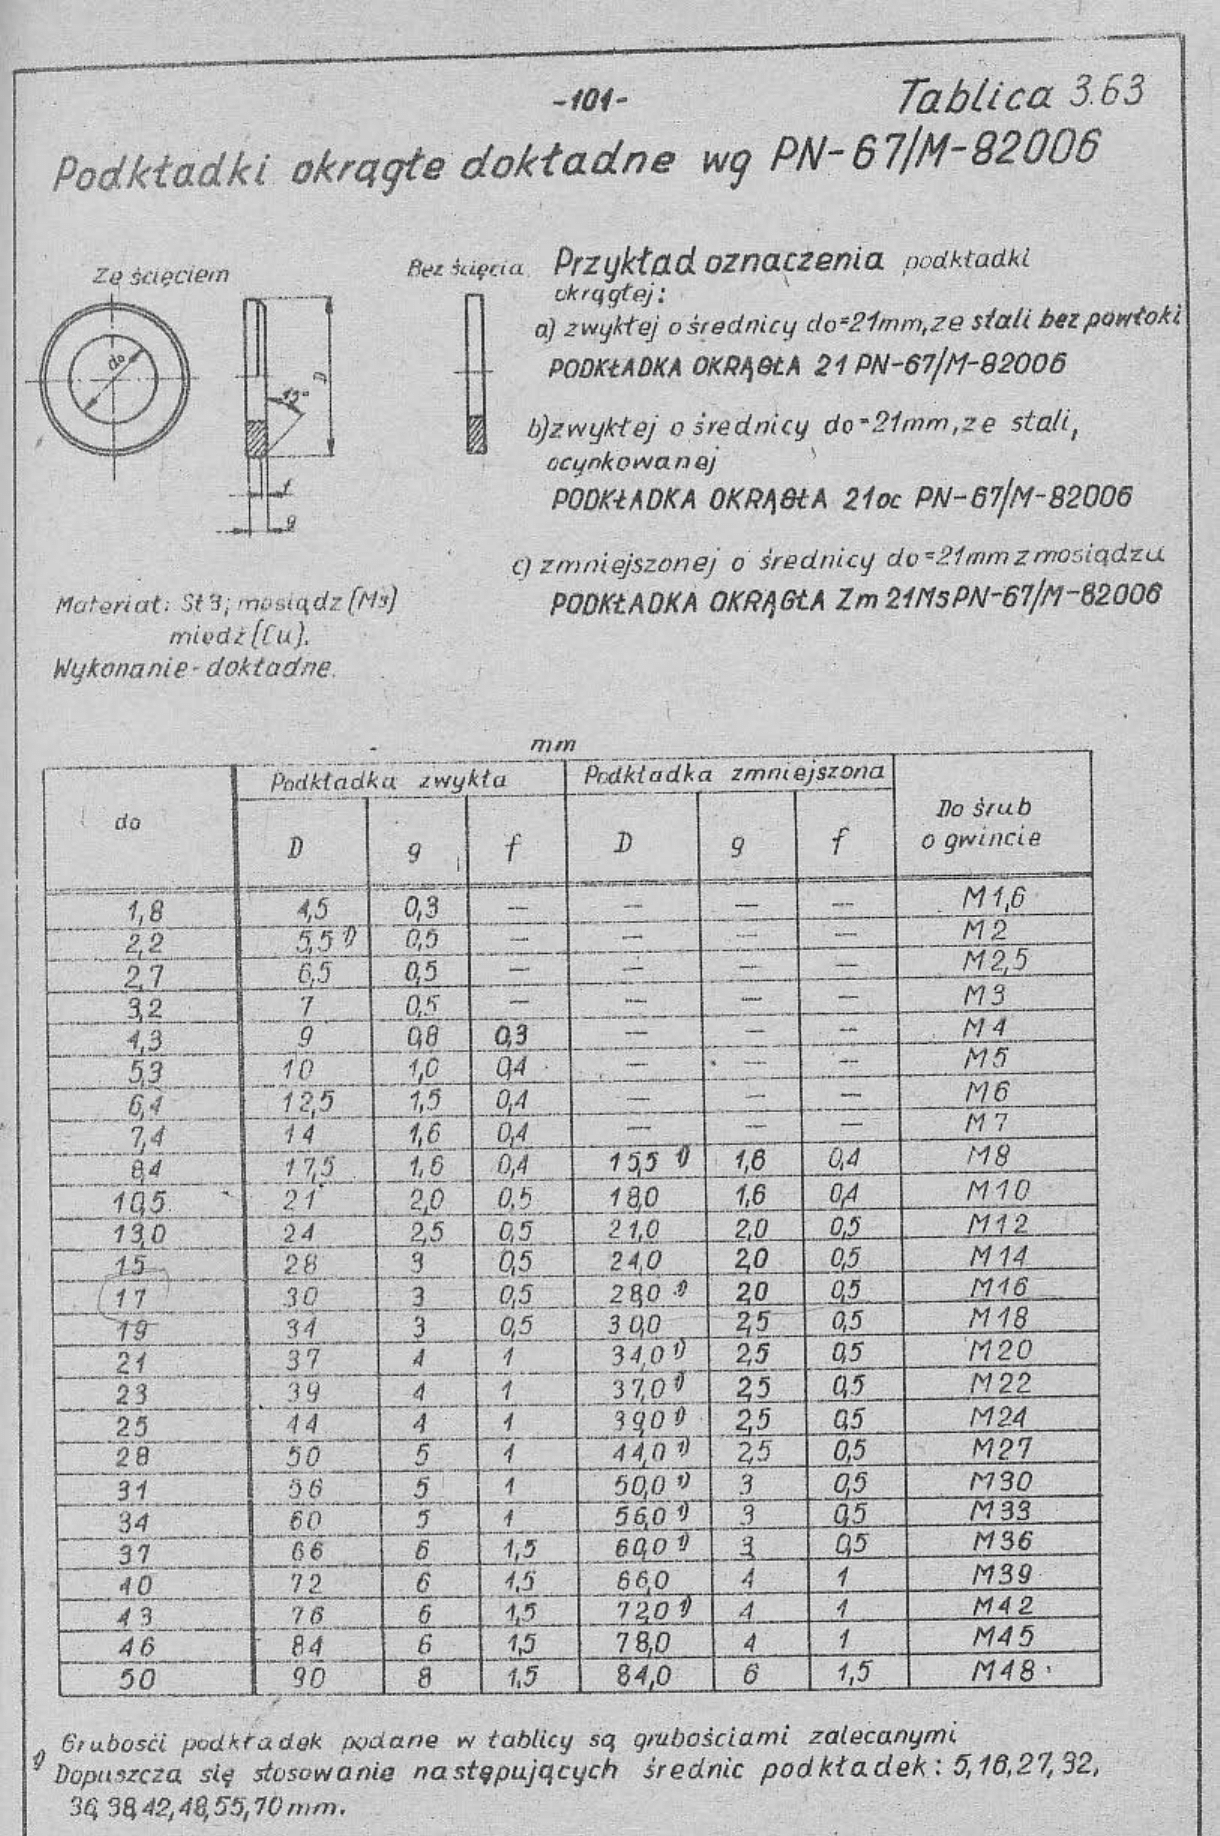 -101-
Tablica 3.63
Podkładki okrągłe dokładne wg PN-67/M-82006
Ze ścięciem
Bez ścięcia
Przykład oznaczenia podkładki
okrągłej:
a) zwykłej o średnicy do=21mm, ze stali bez powłoki
PODKŁADKA OKRĄGŁA 21 PN-67/M-82006
b) zwykłej o średnicy do=21mm, ze stali,
ocynkowanej
PODKŁADKA OKRĄGŁA 21oc PN-67/M-82006
c) zmniejszonej o średnicy do=21mm z mosiądzu
PODKŁADKA OKRĄGŁA Zm 21Ms PN-67/M-82006
do
D
f
g
Materiał: St3; mosiądz (Ms)
miedź (Cu).
Wykonanie - dokładne.
mm
do Podkładka zwykła Podkładka zmniejszona Do śrub
o gwincie
D g f D g f
1,8 4,5 0,3 — — — — M1,6
2,2 5,5 1) 0,5 — — — — M2
2,7 6,5 0,5 — — — — M2,5
3,2 7 0,5 — — — — M3
4,3 9 0,8 0,3 — — — M4
5,3 10 1,0 0,4 — — — M5
6,4 12,5 1,5 0,4 — — — M6
7,4 14 1,6 0,4 — — — M7
8,4 17,5 1,6 0,4 15,5 1) 1,6 0,4 M8
10,5 21 2,0 0,5 18,0 1,6 0,4 M10
13,0 24 2,5 0,5 21,0 2,0 0,5 M12
15 28 3 0,5 24,0 2,0 0,5 M14
17 30 3 0,5 28,0 1) 2,0 0,5 M16
19 34 3 0,5 30,0 2,5 0,5 M18
21 37 4 1 34,0 1) 2,5 0,5 M20
23 39 4 1 37,0 1) 2,5 0,5 M22
25 44 4 1 39,0 1) 2,5 0,5 M24
28 50 5 1 44,0 1) 2,5 0,5 M27
31 56 5 1 50,0 1) 3 0,5 M30
34 60 5 1 56,0 1) 3 0,5 M33
37 66 6 1,5 60,0 1) 3 0,5 M36
40 72 6 1,5 66,0 4 1 M39
43 76 6 1,5 72,0 1) 4 1 M42
46 84 6 1,5 78,0 4 1 M45
50 90 8 1,5 84,0 6 1,5 M48
Grubości podkładek podane w tablicy są grubościami zalecanymi
1) Dopuszcza się stosowanie następujących średnic podkładek: 5, 16, 27, 32,
36, 38, 42, 48, 55, 70 mm.